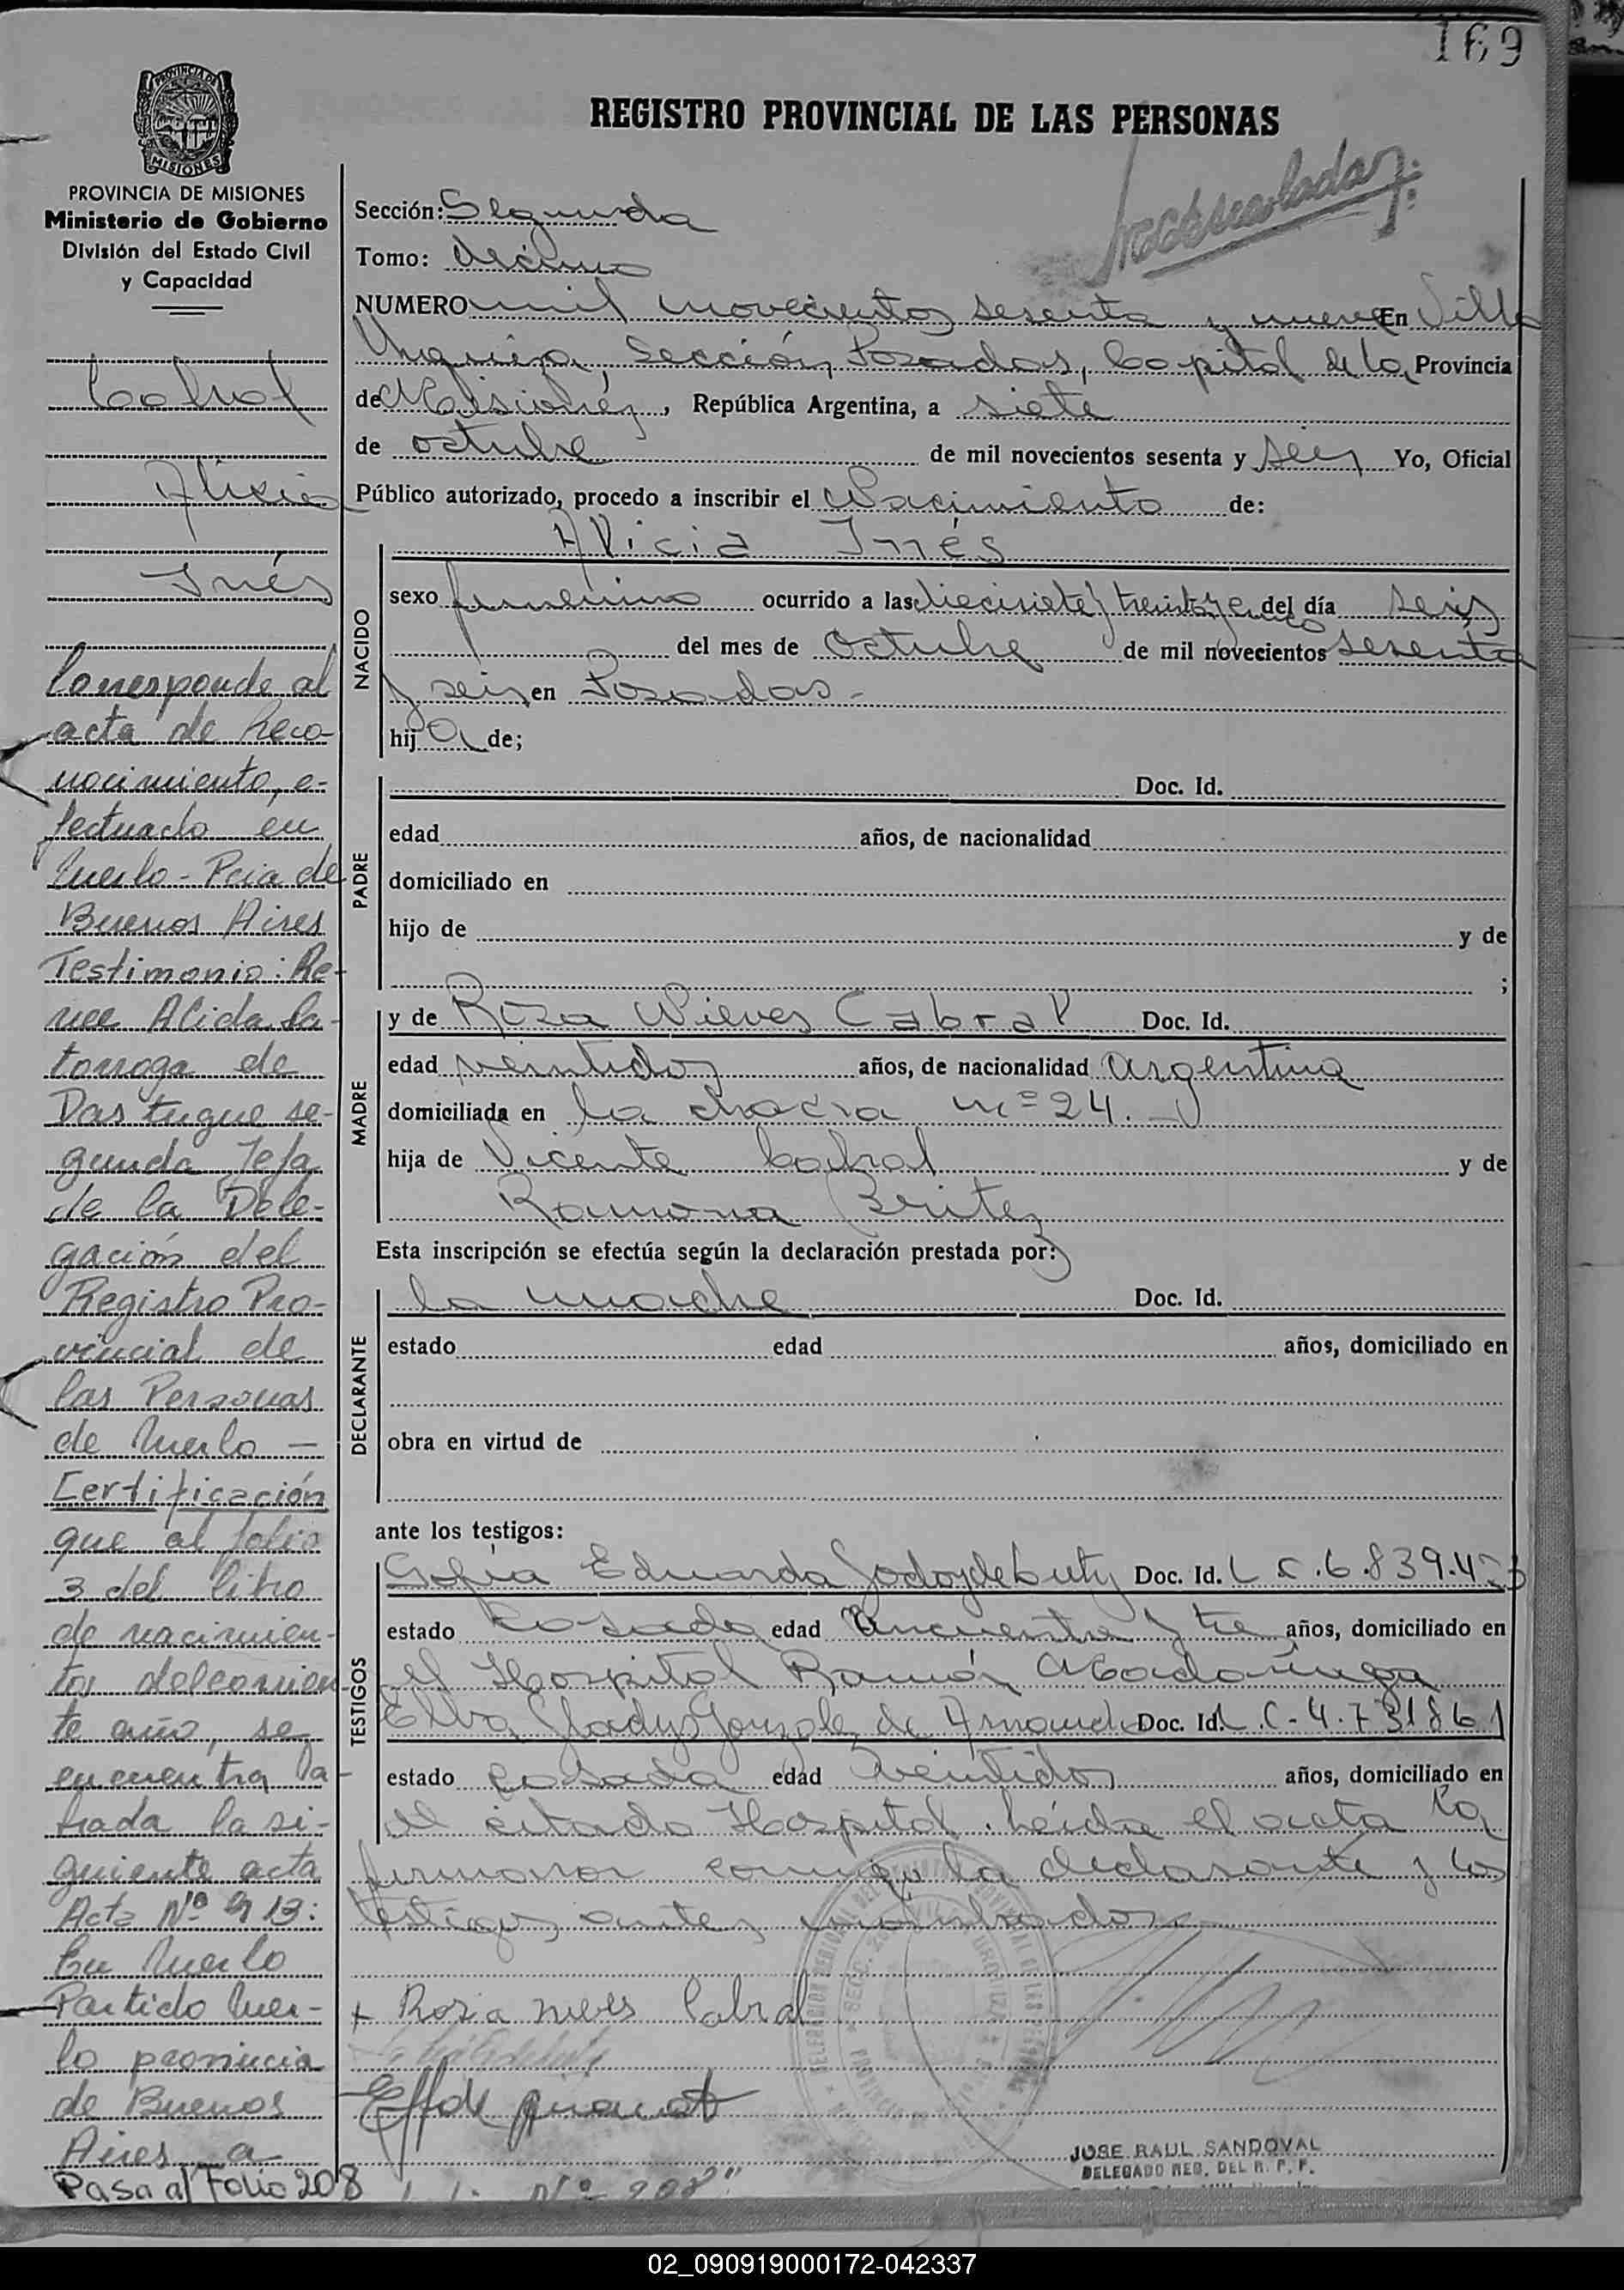 169
PROVINCIA DE
MISIONES
REGISTRO PROVINCIAL DE LAS PERSONAS
PROVINCIA DE MISIONES
Ministerio de Gobierno
División del Estado Civil
y Capacidad
Cabral
Alicia
Inés
Corresponde al
acta de Reco-
nocimiento, e-
fectuado en
Merlo - Pcia de
Buenos Aires
Testimonio: Re-
nee Alida La-
torroga de
Dastugue se-
gunda Jefa
de la Dele-
gación del
Registro Pro-
vincial de
las Personas
de Merlo —
Certificación
que al folio
3 del libro
de nacimien-
tos del corrien-
te año, se
encuentra la-
brada la si-
guiente acta
Acta Nº 913:
En Merlo
Partido Mer-
lo provincia
de Buenos
Aires a
Pasa al Folio 208
Sección: Segunda
Tomo: décimo
NUMERO mil novecientos sesenta y nueve En Villa
Urquiza, Sección, Posadas, Capital de la Provincia
de Misiones, República Argentina, a siete
de octubre de mil novecientos sesenta y seis Yo, Oficial
Público autorizado, procedo a inscribir el Nacimiento de:
Alicia Inés
NACIDO
sexo femenino ocurrido a las diecisiete y treinta y cinco del día seis
del mes de Octubre de mil novecientos sesenta
y seis en Posadas.-
hij a de;
PADRE
Doc. Id.
edad años, de nacionalidad
domiciliado en
hijo de y de
;
MADRE
y de Rosa Nieves Cabral Doc. Id.
edad veintidos años, de nacionalidad argentina
domiciliada en la chacra nº 24.-
hija de Vicente Cabral y de
Ramona Britez
Esta inscripción se efectúa según la declaración prestada por:
DECLARANTE
la madre Doc. Id.
estado edad años, domiciliado en
obra en virtud de
ante los testigos:
TESTIGOS
Sofia Eduarda Godoy de Doc. Id. L C. 6.839.453
estado casada edad cincuenta y tres años, domiciliado en
el Hospital Ramón Madariaga
Elba Gladys Gonzalez de Doc. Id. L C-4.731861
estado casada edad veintidos años, domiciliado en
el citado Hospital. Leída el acta la
firmaron conmigo la declarante y los
testigos antes nombrados
+ Rosa nieves Cabral
JOSE RAUL SANDOVAL
DELEGADO REG. DEL R. P. P.
Nº 208"
02_090919000172-042337